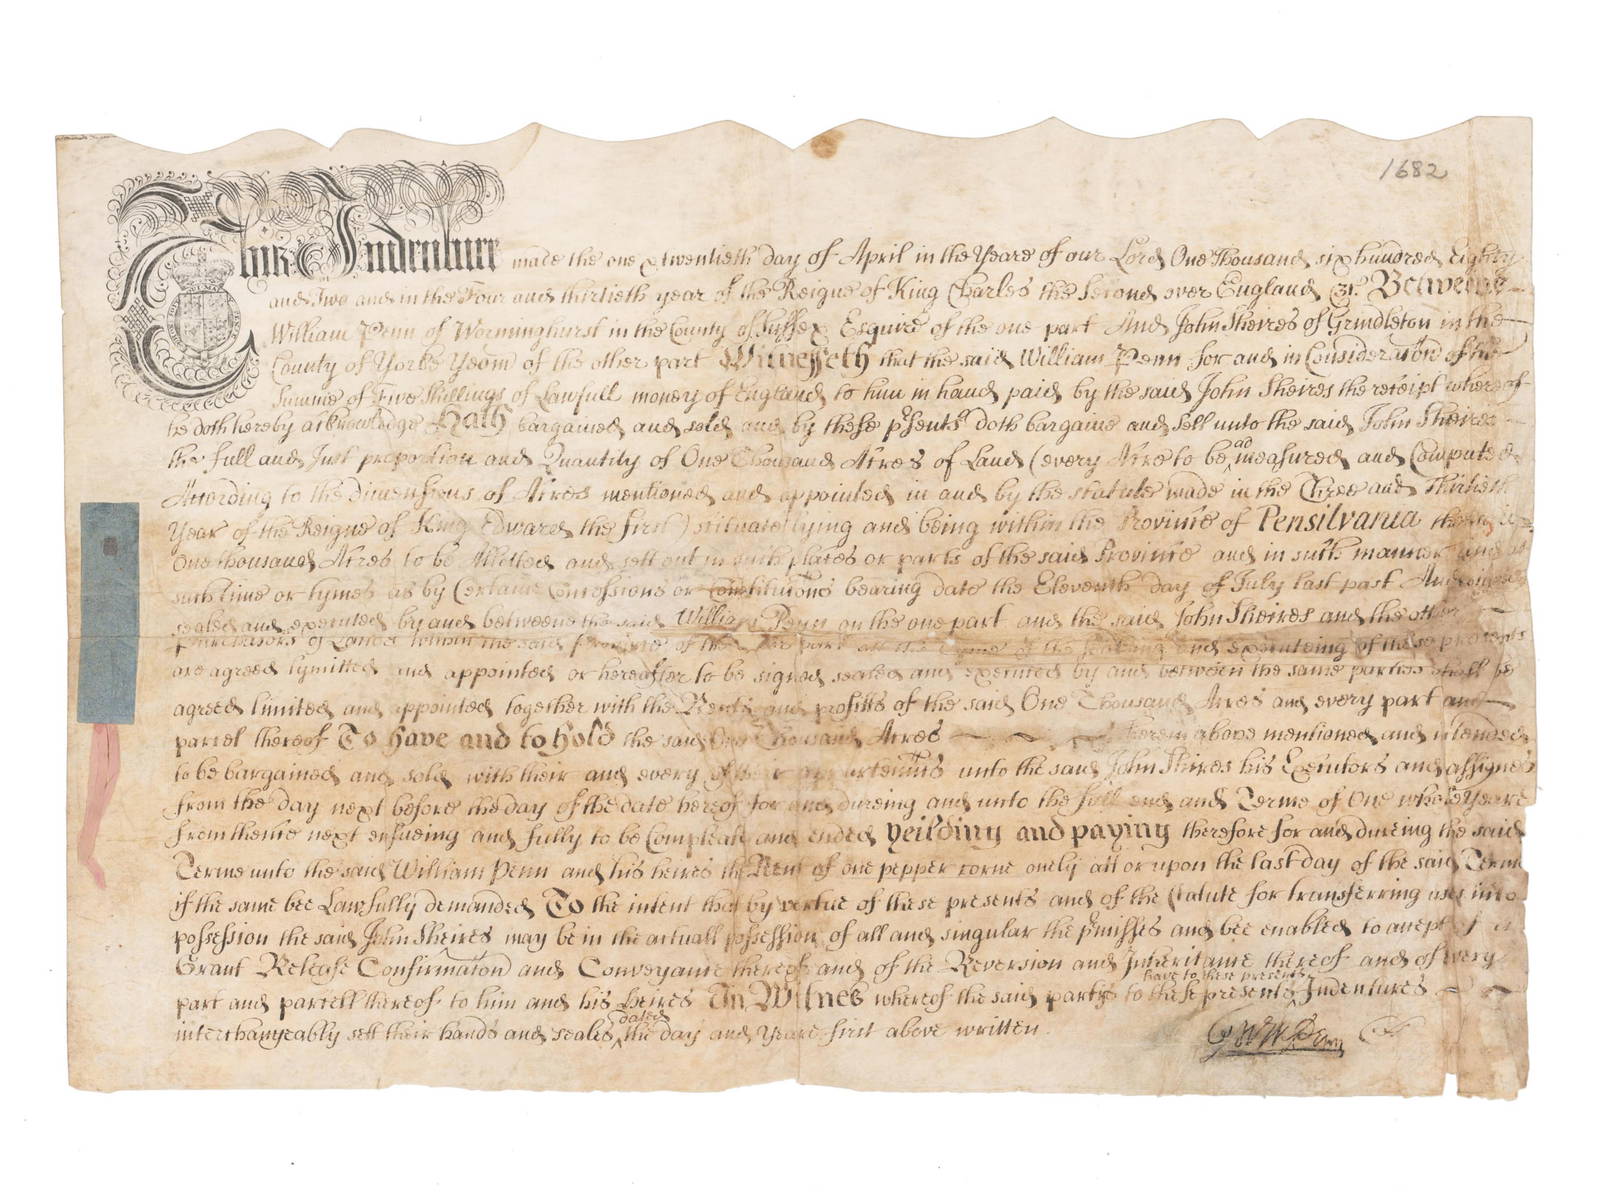 1682
This Indenture made the one & twentieth day of April in the Yeare of our Lord One Thousand six hundred Eighty
and Two and in the Four and thirtieth year of the Reigne of King Charles the Second over England &c. Betweene
William Penn of Worminghurst in the County of Sussex Esquire of the one part And John Sheires of Grindleton in the
County of Yorke Yeom of the other part Witnesseth that the said William Penn for and in Consideration of the
Summe of Five Shillings of Lawfull money of England to him in hand paid by the said John Sheires the receipt whereof
he doth hereby acknowledge Hath bargained and sold and by these psents doth bargaine and sell unto the said John Sheires
the full and Just proportion and Quantity of One Thousand Acres of Land (every Acre to be admeasured and Computed
According to the dimensions of Acres mentioned and appointed in and by the statute made in the Three and Thirtieth
Year of the Reigne of King Edward the first) scituate lying and being within the Province of Pensilvania the said
One thousand Acres to be Allotted and sett out in such places or parts of the said Province and in such manner and at
such time or tymes as by Certaine Concessions or Constitutions bearing date the Eleventh day of July last past And signed
sealed and executed by and betweene the said William Penn on the one part and the said John Sheires and the other
Purchasors of Lands within the said Province of the other part att the tyme of the sealing and executeing of these presents
are agreed lymitted and appointed or hereafter to be signed sealed and executed by and between the same parties shall be
agreed limited and appointed together with the Rents and profitts of the said One Thousand Acres and every part and
parcel thereof To have and to hold the said One Thousand Acres herein above mentioned and intended
to be bargained and sold with their and every of their appurtenncs unto the said John Shires his Executors and assignes
from the day next before the day of the date hereof for and dureing and unto the full end and Terme of One whole Yeare
from thence next ensueing and fully to be Compleat and ended yeilding and paying therefore for and dureing the said
Terme unto the said William Penn and his heires the Rent of one pepper corne onely att or upon the last day of the said Terme
if the same bee Lawfully demanded To the intent that by vertue of these presents and of the Statute for transferring uses into
possession the said John Sheires may be in the actuall possession of all and singular the pmisses and bee enabled to accept of a
Grant Release Confirmation and Conveyance thereof and of the Reversion and Inheritance thereof and of every
part and parcell thereof to him and his heires In Witnes whereof the said partys to these presents have to these presents Indentures
interchangeably sett their hands and seales dated the day and Yeare first above written.
Wm Penn